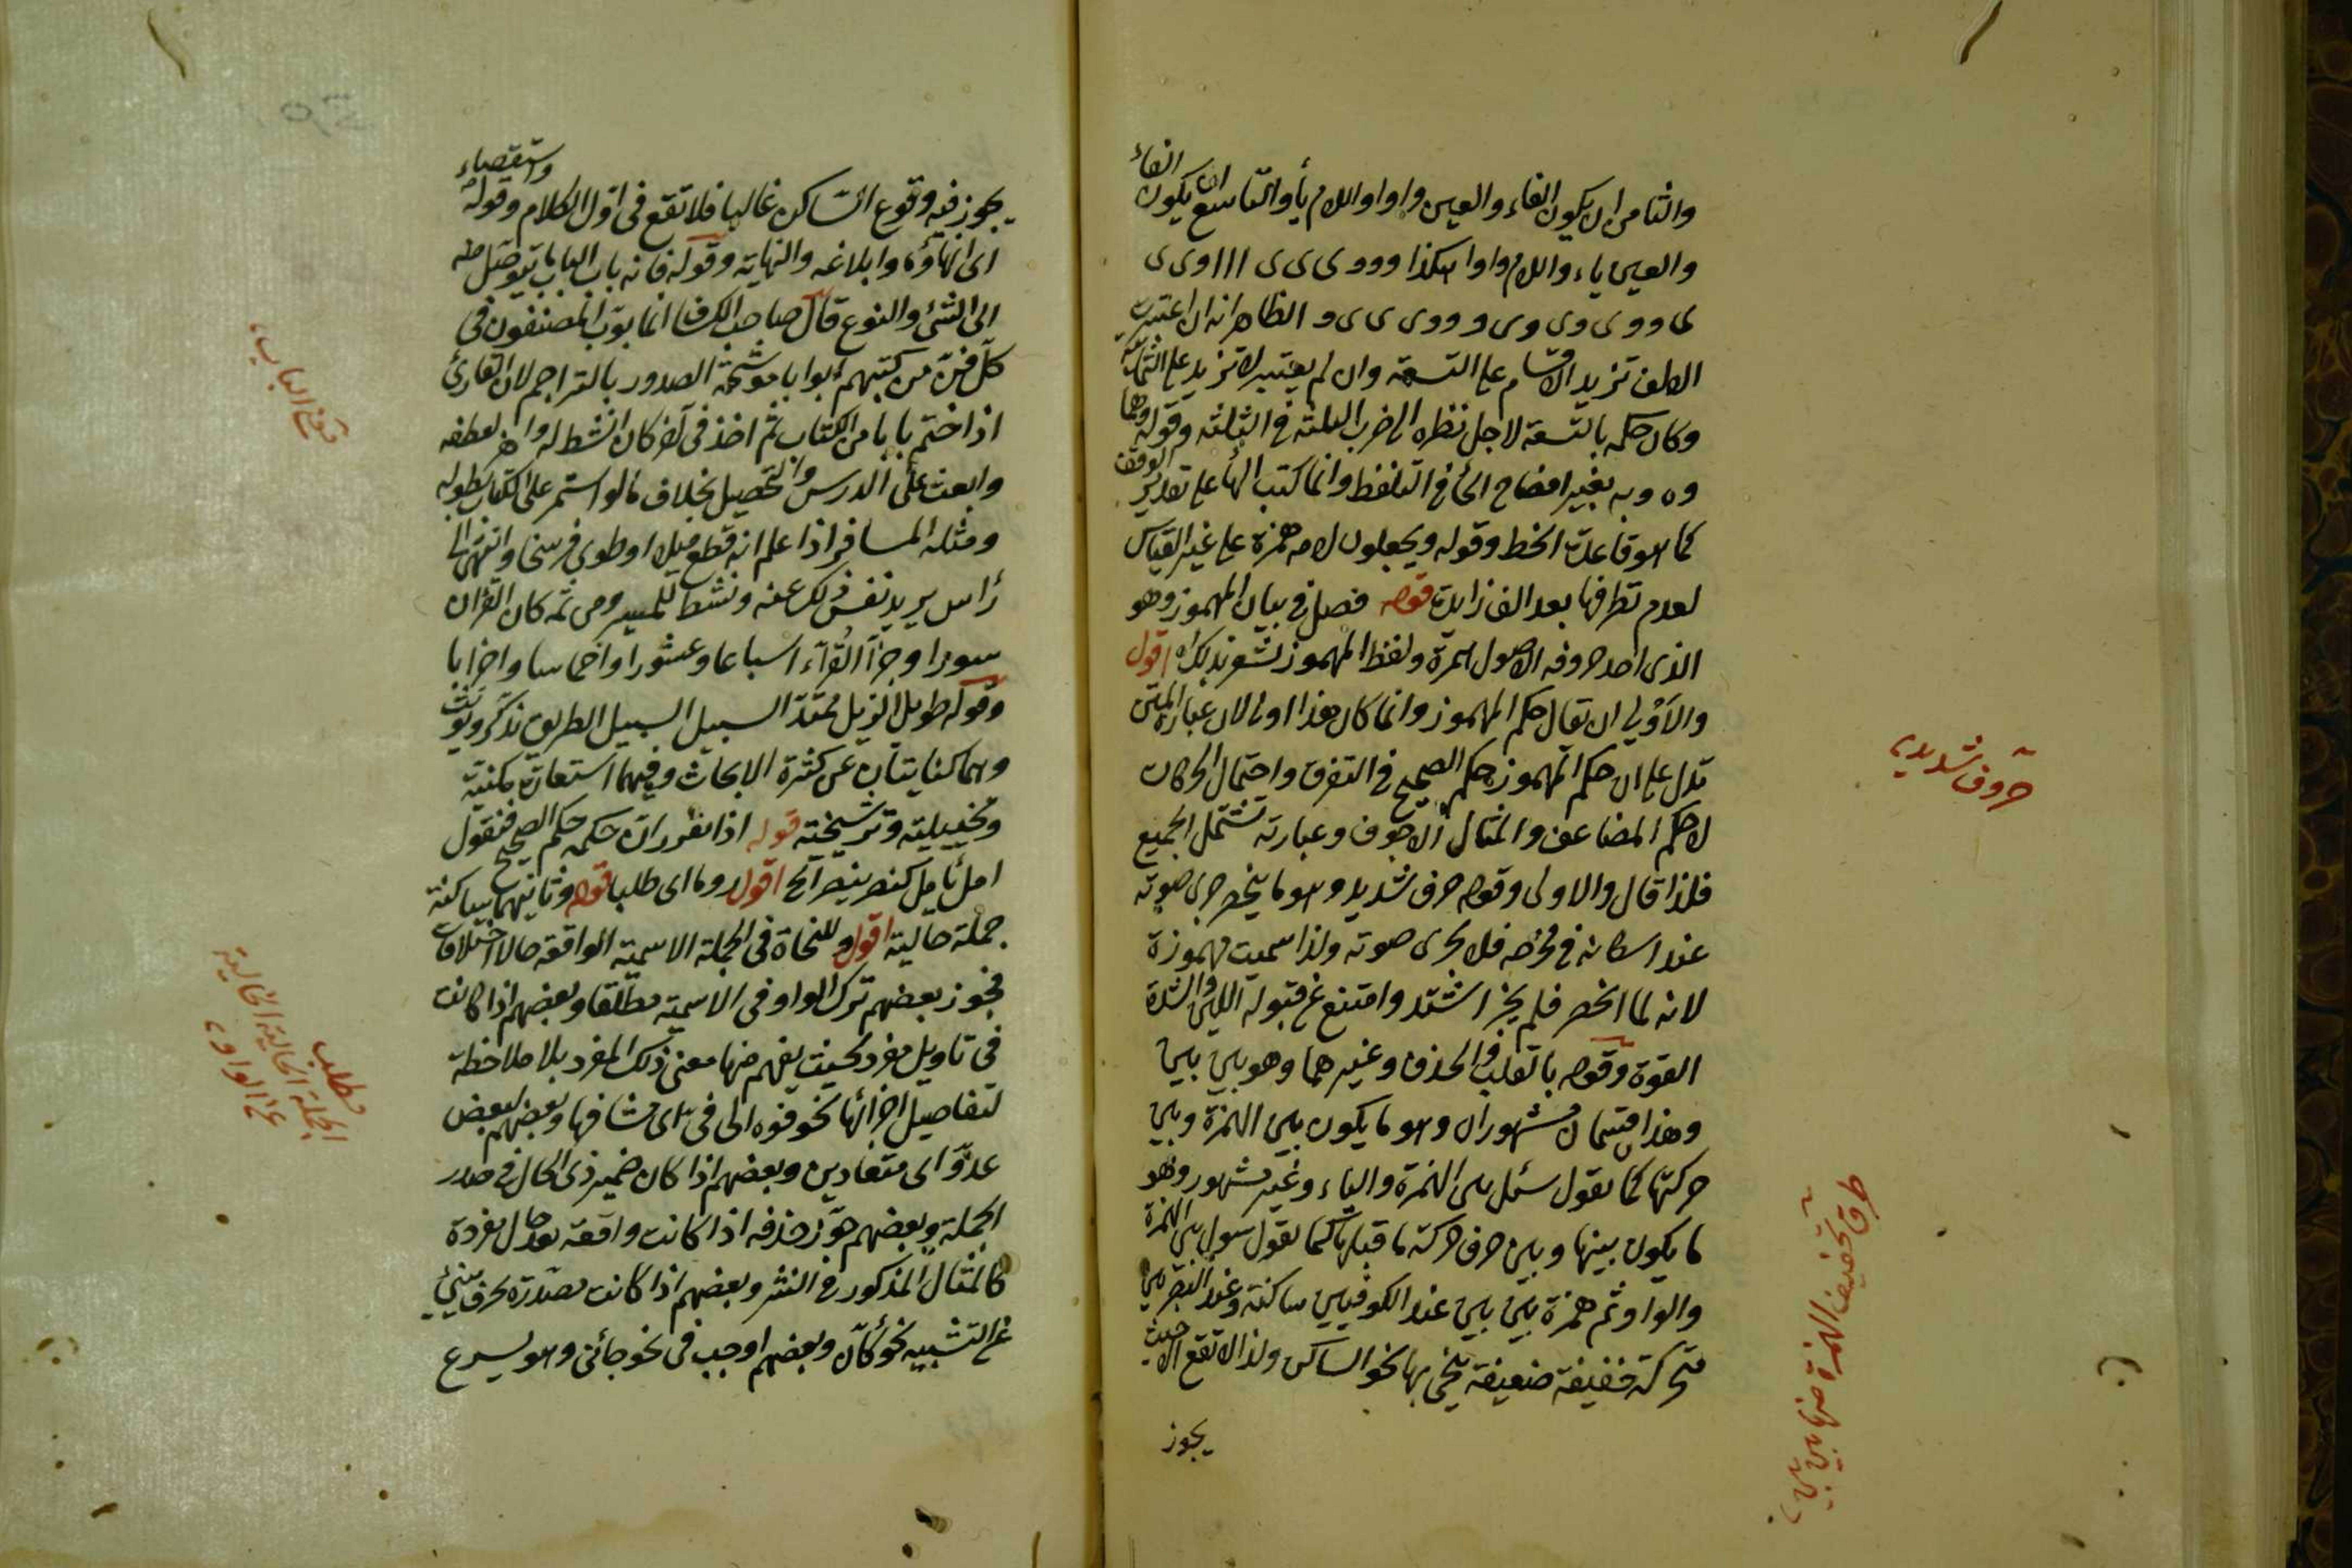 والثامن ان يكون الفاء والعين واوا واللام ياأ والتاسع ان يكون الفاء
والعين ياء واللام واوا هكذا ووو ى ى ى ااا وى ى
ى وو ى وى وى و ووى ى ى و الظاهر انه ان اعتبرت
الالف تزيد الاقسام على التسعة وان لم يعتبر لا تزيد على الثمانية
وكان حكمه بالتسعة لاجل نظره الى ضرب الثلثة فى الثلثة وقوله وهما
وه وبه بغير افصاح الهأ فى التلفظ وانما كتب الهأ على تقدير الوقف
كما هو قاعدة الخط وقوله ويجعلون لامه همزة على غير القياس
لعدم تطرفها بعد الف زايدة قوله فصل فى بيان المهموز وهو
الذى احد حروفه الاصول همزة ولفظ المهموز يشعر بذلك اه اقول
والاولى ان تقال حكم المهموز وانما كان هذا اولى لان عبارة المتن
تدل على ان حكم المهموز حكم الصحيح فى التفرق واحتمال الحركات
لا حكم المضاعف والمثال والاجوف وعبارته تشتمل الجميع
فلذا قال والاولى وقوله حرف شديد وهو ما ينحصر جرى صوته
عند اسكانه فى مخرجه فلا يجرى صوته ولذا سميت مهموزة
لانه لما انحصر فلم يجز اشتد وامتنع عن قبوله اللين والشدة
القوة وقوله بالقلب والحذف وغيرهما وهو بين بين
وهذا قسمان مشهوران وهو ما يكون بين الهمزة وبين
حركتها كما تقول سئل بين الهمزة والياء وغير مشهور وهو
ما يكون بينها وبين حرف حركة ما قبلها كما تقول سول بين الهمزة
والواو ثم همزة بين بين عند الكوفيين ساكنة وعند البصريين
متحركة خفيفة ضعيفة ينحى بها نحو الساكن ولذا لا تقع الا حيث
يجوز
حروف شديده
طرق تخفيف الهمزة منها بين بين
يجوز فيه وقوع الساكن غالبا فلا تقع فى اول الكلام وقوله واستقصاء
اى انهاؤه وابلاغه والنهاية وقوله فانه باب الباب ما يتوصل منه
الى الشئ والنوع قال صاحب الكشاف انما بوب المصنفون فى
كل فن من كتبهم ابوابا موشحة الصدور بالتراجم لان القارئ
اذا ختم بابا من الكتاب ثم اخذ فى آخر كان انشط له واهز لعطفه
وابعث على الدرس والتحصيل بخلاف ما لو استمر على الكتاب بطوله
ومثله المسافر اذا علم انه قطع ميلا او طوى فرسخا وانتهى الى
رأس بريد نفس ذلك عنه ونشط للمسير ومن ثمه كان القرآن
سورا وجزأ القرّآء اسباعا وعشورا واخماسا واحزابا
وقوله طويل الذيل ممتد السبيل السبيل الطريق تذكر وتؤنث
وهما كنايتان عن كثرة الابحاث وفيهما استعارة مكنية
وتخييلية وترشيحية قوله اذا تقرر ان حكمه حكم الصحيح فنقول
امل يأمل كنصر ينصر الخ اقول روما اى طلبا قوله وثانيهما ساكنة
جملة حالية اقول وللنحاة فى الجملة الاسمية الواقعة حالا اختلافات
فجوز بعضهم ترك الواو فى الاسمية مطلقا وبعضهم اذا كانت
فى تاويل مفرد بحيث يفهم منها معنى ذلك المفرد بلا ملاحظة
لتفاصيل اجزائها نحو فوه الى فى اى مشافها وبعضهم لبعض
عدو اى متعادين وبعضهم اذا كان ضمير ذى الحال فى صدر
الجملة وبعضهم جوز حذفه اذا كانت واقعة بعد حال مفردة
كالمثال المذكور فى النثر وبعضهم اذا كانت مصدرة بحرف ينبئ
عن التشبيه نحو كأن وبعضهم اوجب فى نحو جائنى وهو يسرع
الباب
مطلب
الجملة الحالية الخالية
عن الواو